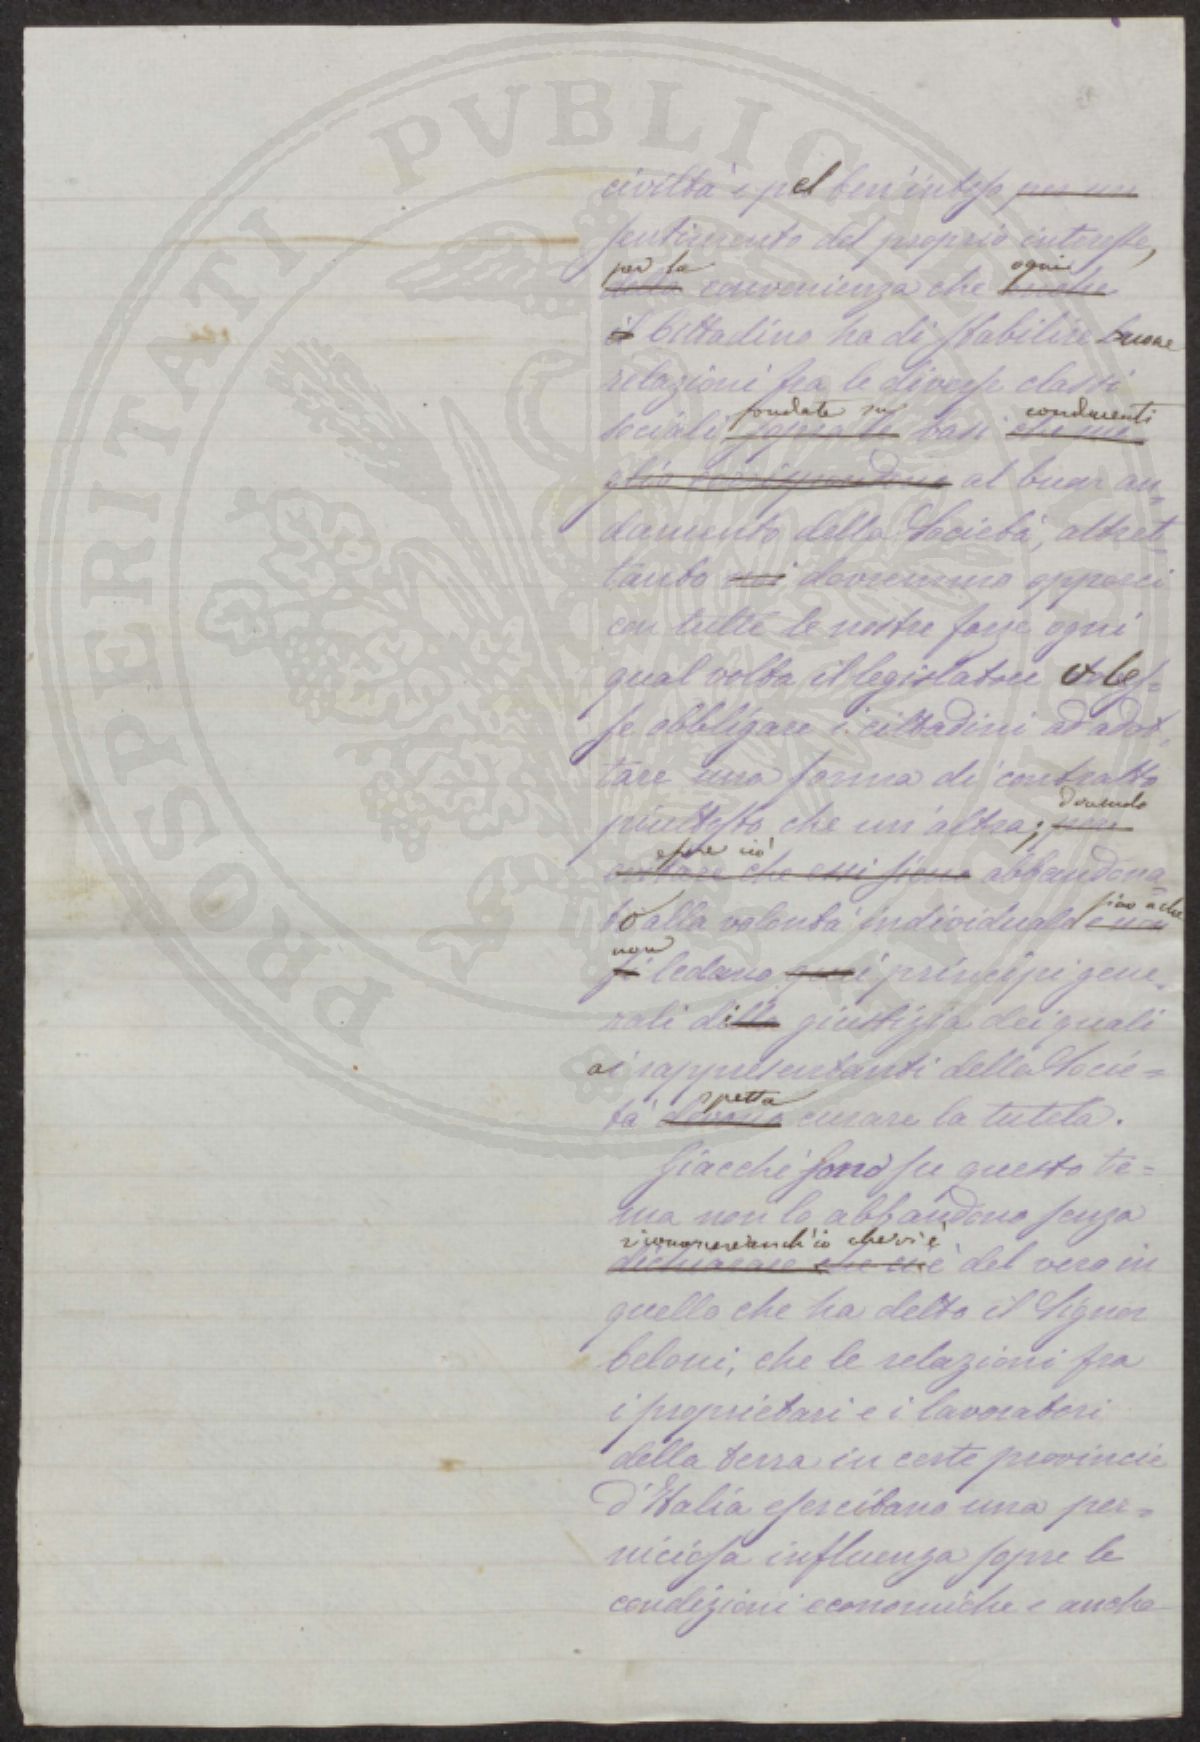 PROSPERITATI PVBLICAE
civiltà e pel ben'inteso per un
sentimento del proprio interesse,
per la ogni
della convenienza che anche
il Cittadino ha di stabilire buone
relazioni fra le diverse classi
fondate su conducenti
sociali, sopra le basi che me
glio corrispondono al buon an=
damento della Società, altret=
tanto noi dovremmo opporci
con tutte le nostre forze ogni
qual volta il legislatore voles=
se obbligare i cittadini ad adot=
tare una forma di contratto
dovendo
piuttosto che un'altra; per
essere ciò
evitare che essi siano abbandona=
fino a che
to alla volontà individuale e non
non
si ledano i principi gene=
rali di giustizia dei quali
ai rappresentanti della Socie=
spetta
tà devono curare la tutela.
Giacché sono su questo te=
ma non lo abbandono senza
riconoscere anch'io che vi è
dichiarare che vi è del vero in
quello che ha detto il Signor
Beloni, che le relazioni fra
i proprietari e i lavoratori
della terra in certe provincie
d'Italia esercitano una per=
niciosa influenza sopra le
condizioni economiche e anche